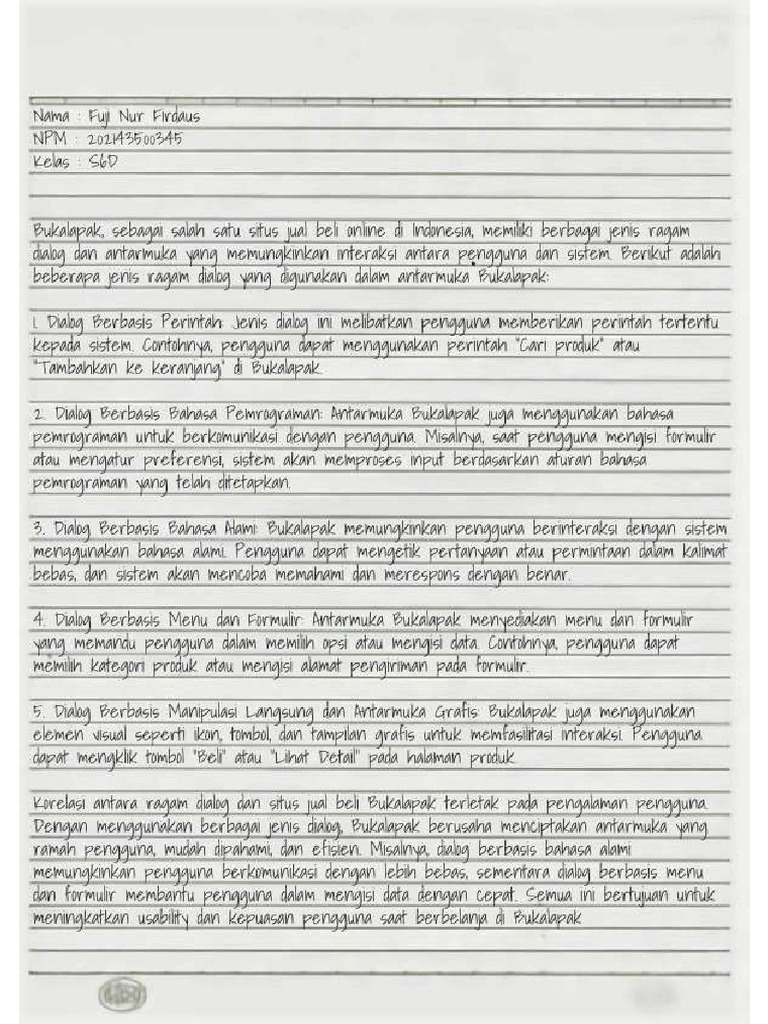 Nama : Fuji Nur Firdaus
NPM : 202143500345
Kelas : S6D
Bukalapak, sebagai salah satu situs jual beli online di Indonesia, memiliki berbagai jenis ragam
dialog dan antarmuka yang memungkinkan interaksi antara pengguna dan sistem. Berikut adalah
beberapa jenis ragam dialog yang digunakan dalam antarmuka Bukalapak:
1. Dialog Berbasis Perintah: Jenis dialog ini melibatkan pengguna memberikan perintah tertentu
kepada sistem. Contohnya, pengguna dapat menggunakan perintah "Cari produk" atau
"Tambahkan ke keranjang" di Bukalapak.
2. Dialog Berbasis Bahasa Pemrograman: Antarmuka Bukalapak juga menggunakan bahasa
pemrograman untuk berkomunikasi dengan pengguna. Misalnya, saat pengguna mengisi formulir
atau mengatur preferensi, sistem akan memproses input berdasarkan aturan bahasa
pemrograman yang telah ditetapkan.
3. Dialog Berbasis Bahasa Alami: Bukalapak memungkinkan pengguna berinteraksi dengan sistem
menggunakan bahasa alami. Pengguna dapat mengetik pertanyaan atau permintaan dalam kalimat
bebas, dan sistem akan mencoba memahami dan merespons dengan benar.
4. Dialog Berbasis Menu dan Formulir: Antarmuka Bukalapak menyediakan menu dan formulir
yang memandu pengguna dalam memilih opsi atau mengisi data. Contohnya, pengguna dapat
memilih kategori produk atau mengisi alamat pengiriman pada formulir.
5. Dialog Berbasis Manipulasi Langsung dan Antarmuka Grafis: Bukalapak juga menggunakan
elemen visual seperti ikon, tombol, dan tampilan grafis untuk memfasilitasi interaksi. Pengguna
dapat mengklik tombol "Beli" atau "Lihat Detail" pada halaman produk.
Korelasi antara ragam dialog dan situs jual beli Bukalapak terletak pada pengalaman pengguna.
Dengan menggunakan berbagai jenis dialog, Bukalapak berusaha menciptakan antarmuka yang
ramah pengguna, mudah dipahami, dan efisien. Misalnya, dialog berbasis bahasa alami
memungkinkan pengguna berkomunikasi dengan lebih bebas, sementara dialog berbasis menu
dan formulir membantu pengguna dalam mengisi data dengan cepat. Semua ini bertujuan untuk
meningkatkan usability dan kepuasan pengguna saat berbelanja di Bukalapak